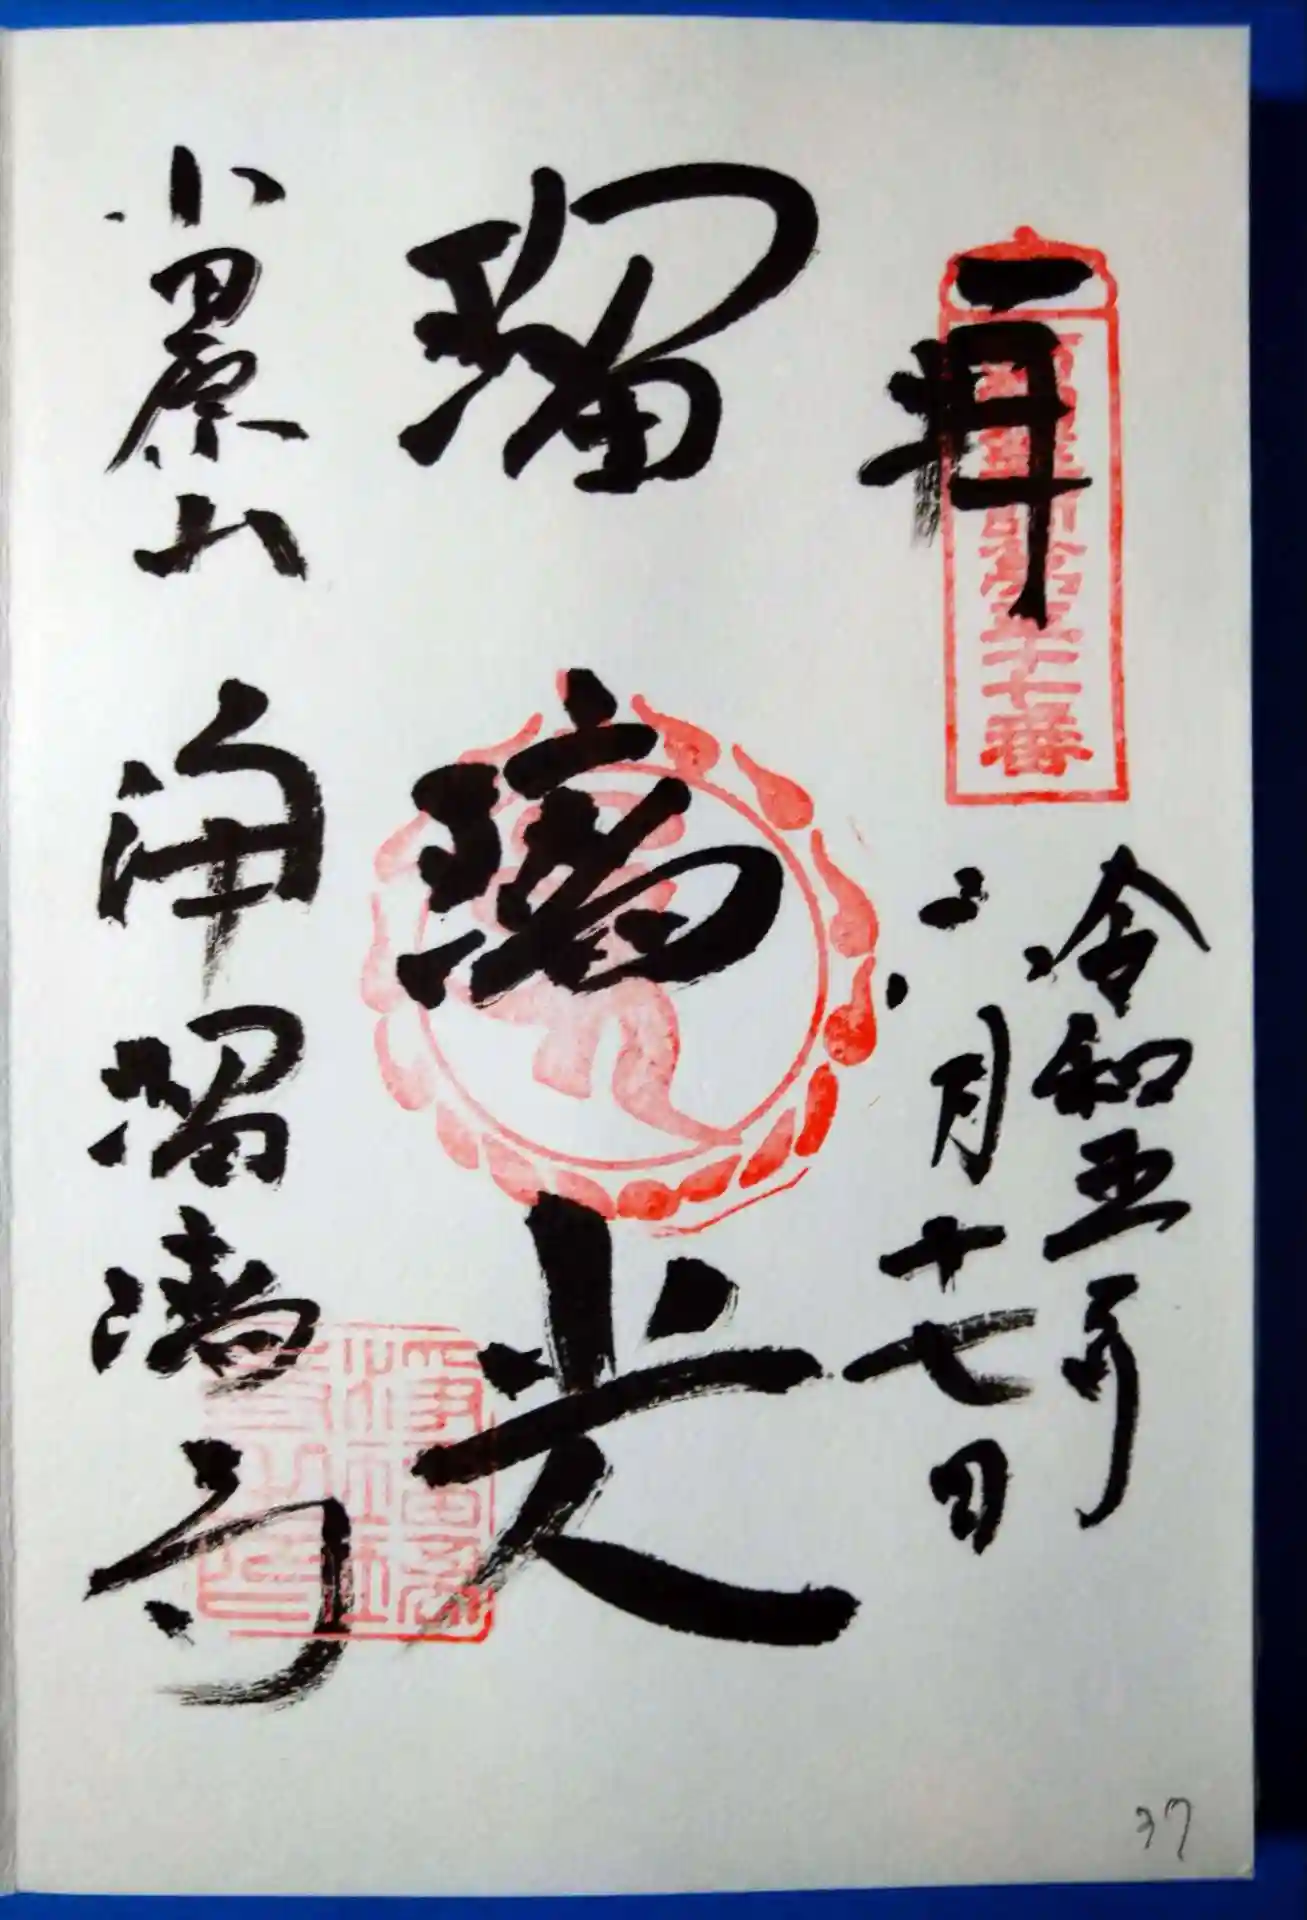 第三十七番
令和五年
三月十七日
瑠璃光
小田原山
浄瑠璃寺
37